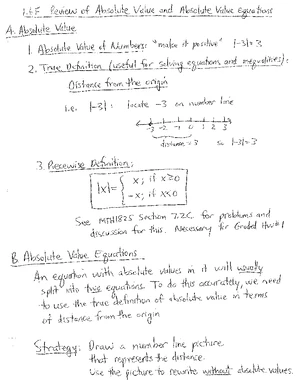 1.6F Review of Absolute Value and Absolute Value Equations
A. Absolute Value
1. Absolute Value of Numbers: "make it positive" |-3|=3
2. True Definition (useful for solving equations and inequalities):
Distance from the origin
i.e. |-3|: locate -3 on number line
-3 -2 -1 0 1 2 3
distance = 3 so |-3|=3
3. Piecewise Definition:
|x| = { x; if x≥0
-x; if x<0
See MTH1825 Section 7.2C for problems and
discussion for this. Necessary for Graded HW#1
B. Absolute Value Equations
An equation with absolute values in it will usually
split into two equations. To do this accurately, we need
to use the true definition of absolute value in terms
of distance from the origin
Strategy: Draw a number line picture
that represents the distance.
Use the picture to rewrite without absolute values.